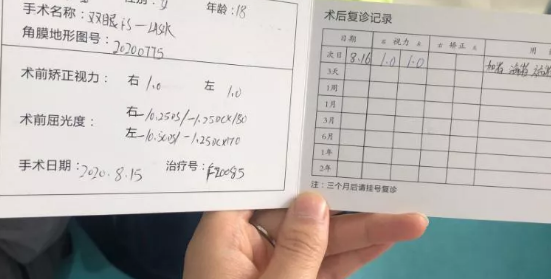 年龄:18
手术名称:双眼 FS-Lasik
角膜地形图号: 20200775
术前矫正视力: 右 1.0 左 1.0
术前屈光度: 右-10.25DS/-1.75DCX180
左-10.50DS/-1.25DCX170
手术日期:2020.8.15 治疗号:
术后复诊记录
日期 视力 矫正 用
次日 8.16 1.0 1.0
3天
1周
1月
3月
6月
1年
2年
注:三个月后请挂号复诊